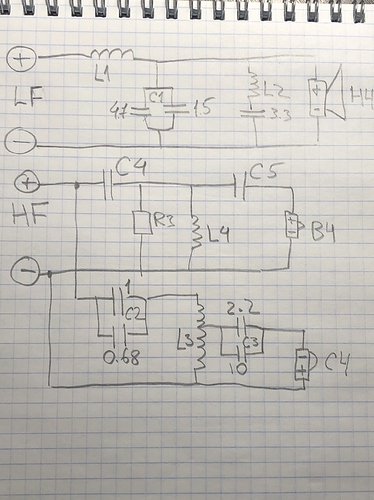 +
L1
LF
4.7
C1
15
L2
3.3
+
-
H4
−
+
HF
C4
C5
R3
L4
B4
−
1
C2
0.68
L3
2.2
C3
10
C4